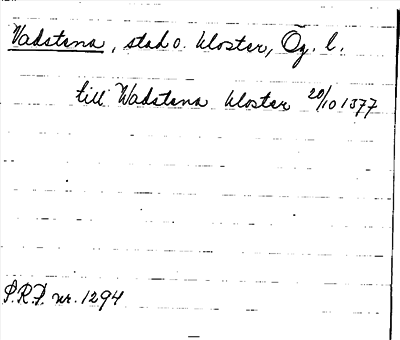 Wadstena, stad o. kloster, Ög. l.
till Wadstena kloster 20/10 1377
S.R.P. nr. 1294